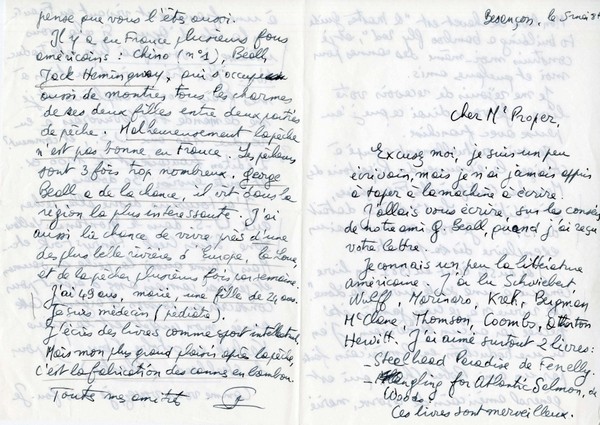 Besançon, le 5 mai 84
Cher Mr Proper,
Excusez moi, je suis un peu
écrivain, mais je n'ai jamais appris
à taper à la machine à écrire.
J'allais vous écrire, sur les conseils
de notre ami G. Beall, quand j'ai reçu
votre lettre.
Je connais un peu la littérature
américaine. J'ai lu Schwiebert,
Wulff, Marinaro, Kreh, Bergman
McClane, Thomson, Coombs, Atherton
Hewitt. J'ai aimé surtout 2 livres:
_ Steelhead Paradise de Fenelly.
_ Angling for Atlantic Salmon, de
Woods.
Ces livres sont merveilleux.
pense que vous l'êtes aussi.
Il y a en France plusieurs fous
américains : Chino (n°1), Beall,
Jack Hemingway, qui s'occupe
aussi de montrer tous les charmes
de ses deux filles entre deux parties
de pêche. Malheureusement la pêche
n'est pas bonne en France. Les pêcheurs
sont 3 fois trop nombreux. George
Beall a de la chance, il vit dans la
région la plus interessante. J'ai
aussi la chance de vivre près d'une
des plus belle rivières d'Europe, la Loue,
et de la pêcher plusieurs fois par semaine.
J'ai 49 ans, marié, une fille de 24 ans.
Je suis médecin (pédiatre).
J'écris des livres comme sport intellectuel.
Mais mon plus grand plaisir après la pêche
c'est la fabrication des cannes en bambou.
Toutes mes amitiés